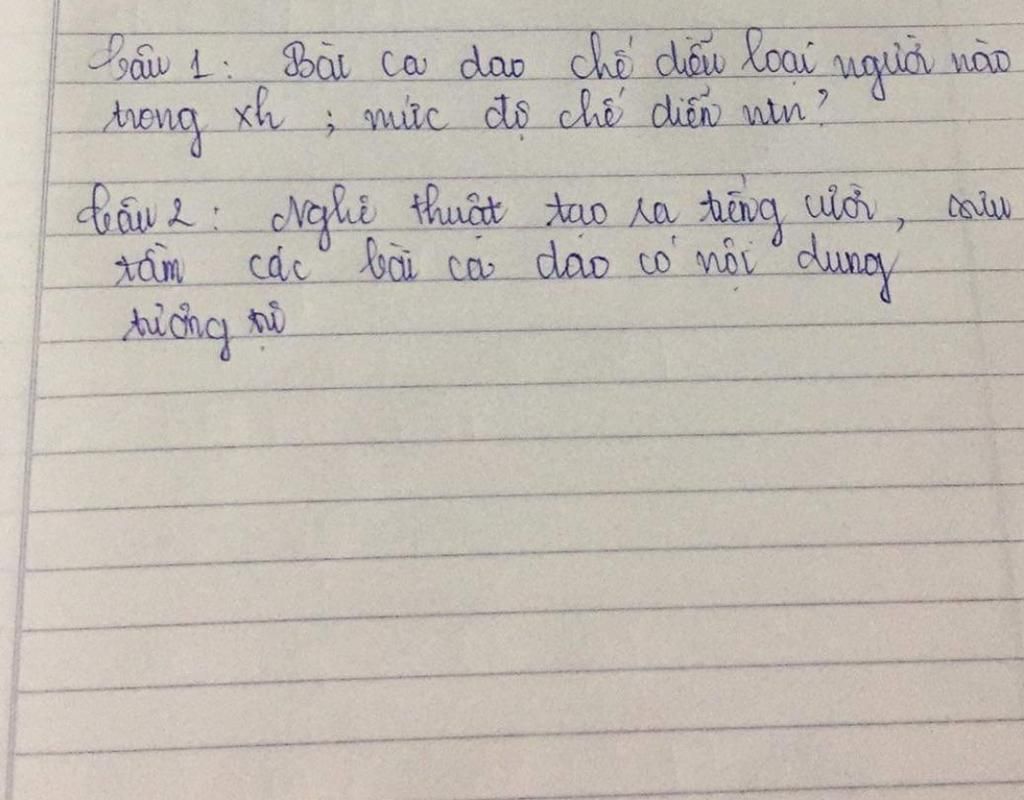 Câu 1: Bài ca dao chế diễu loại người nào
trong xh ; mức độ chế diễn ntn?
Câu 2: Nghệ thuật tạo ra tiếng cười, sưu
tầm các bài ca dao có nội dung
tương tự